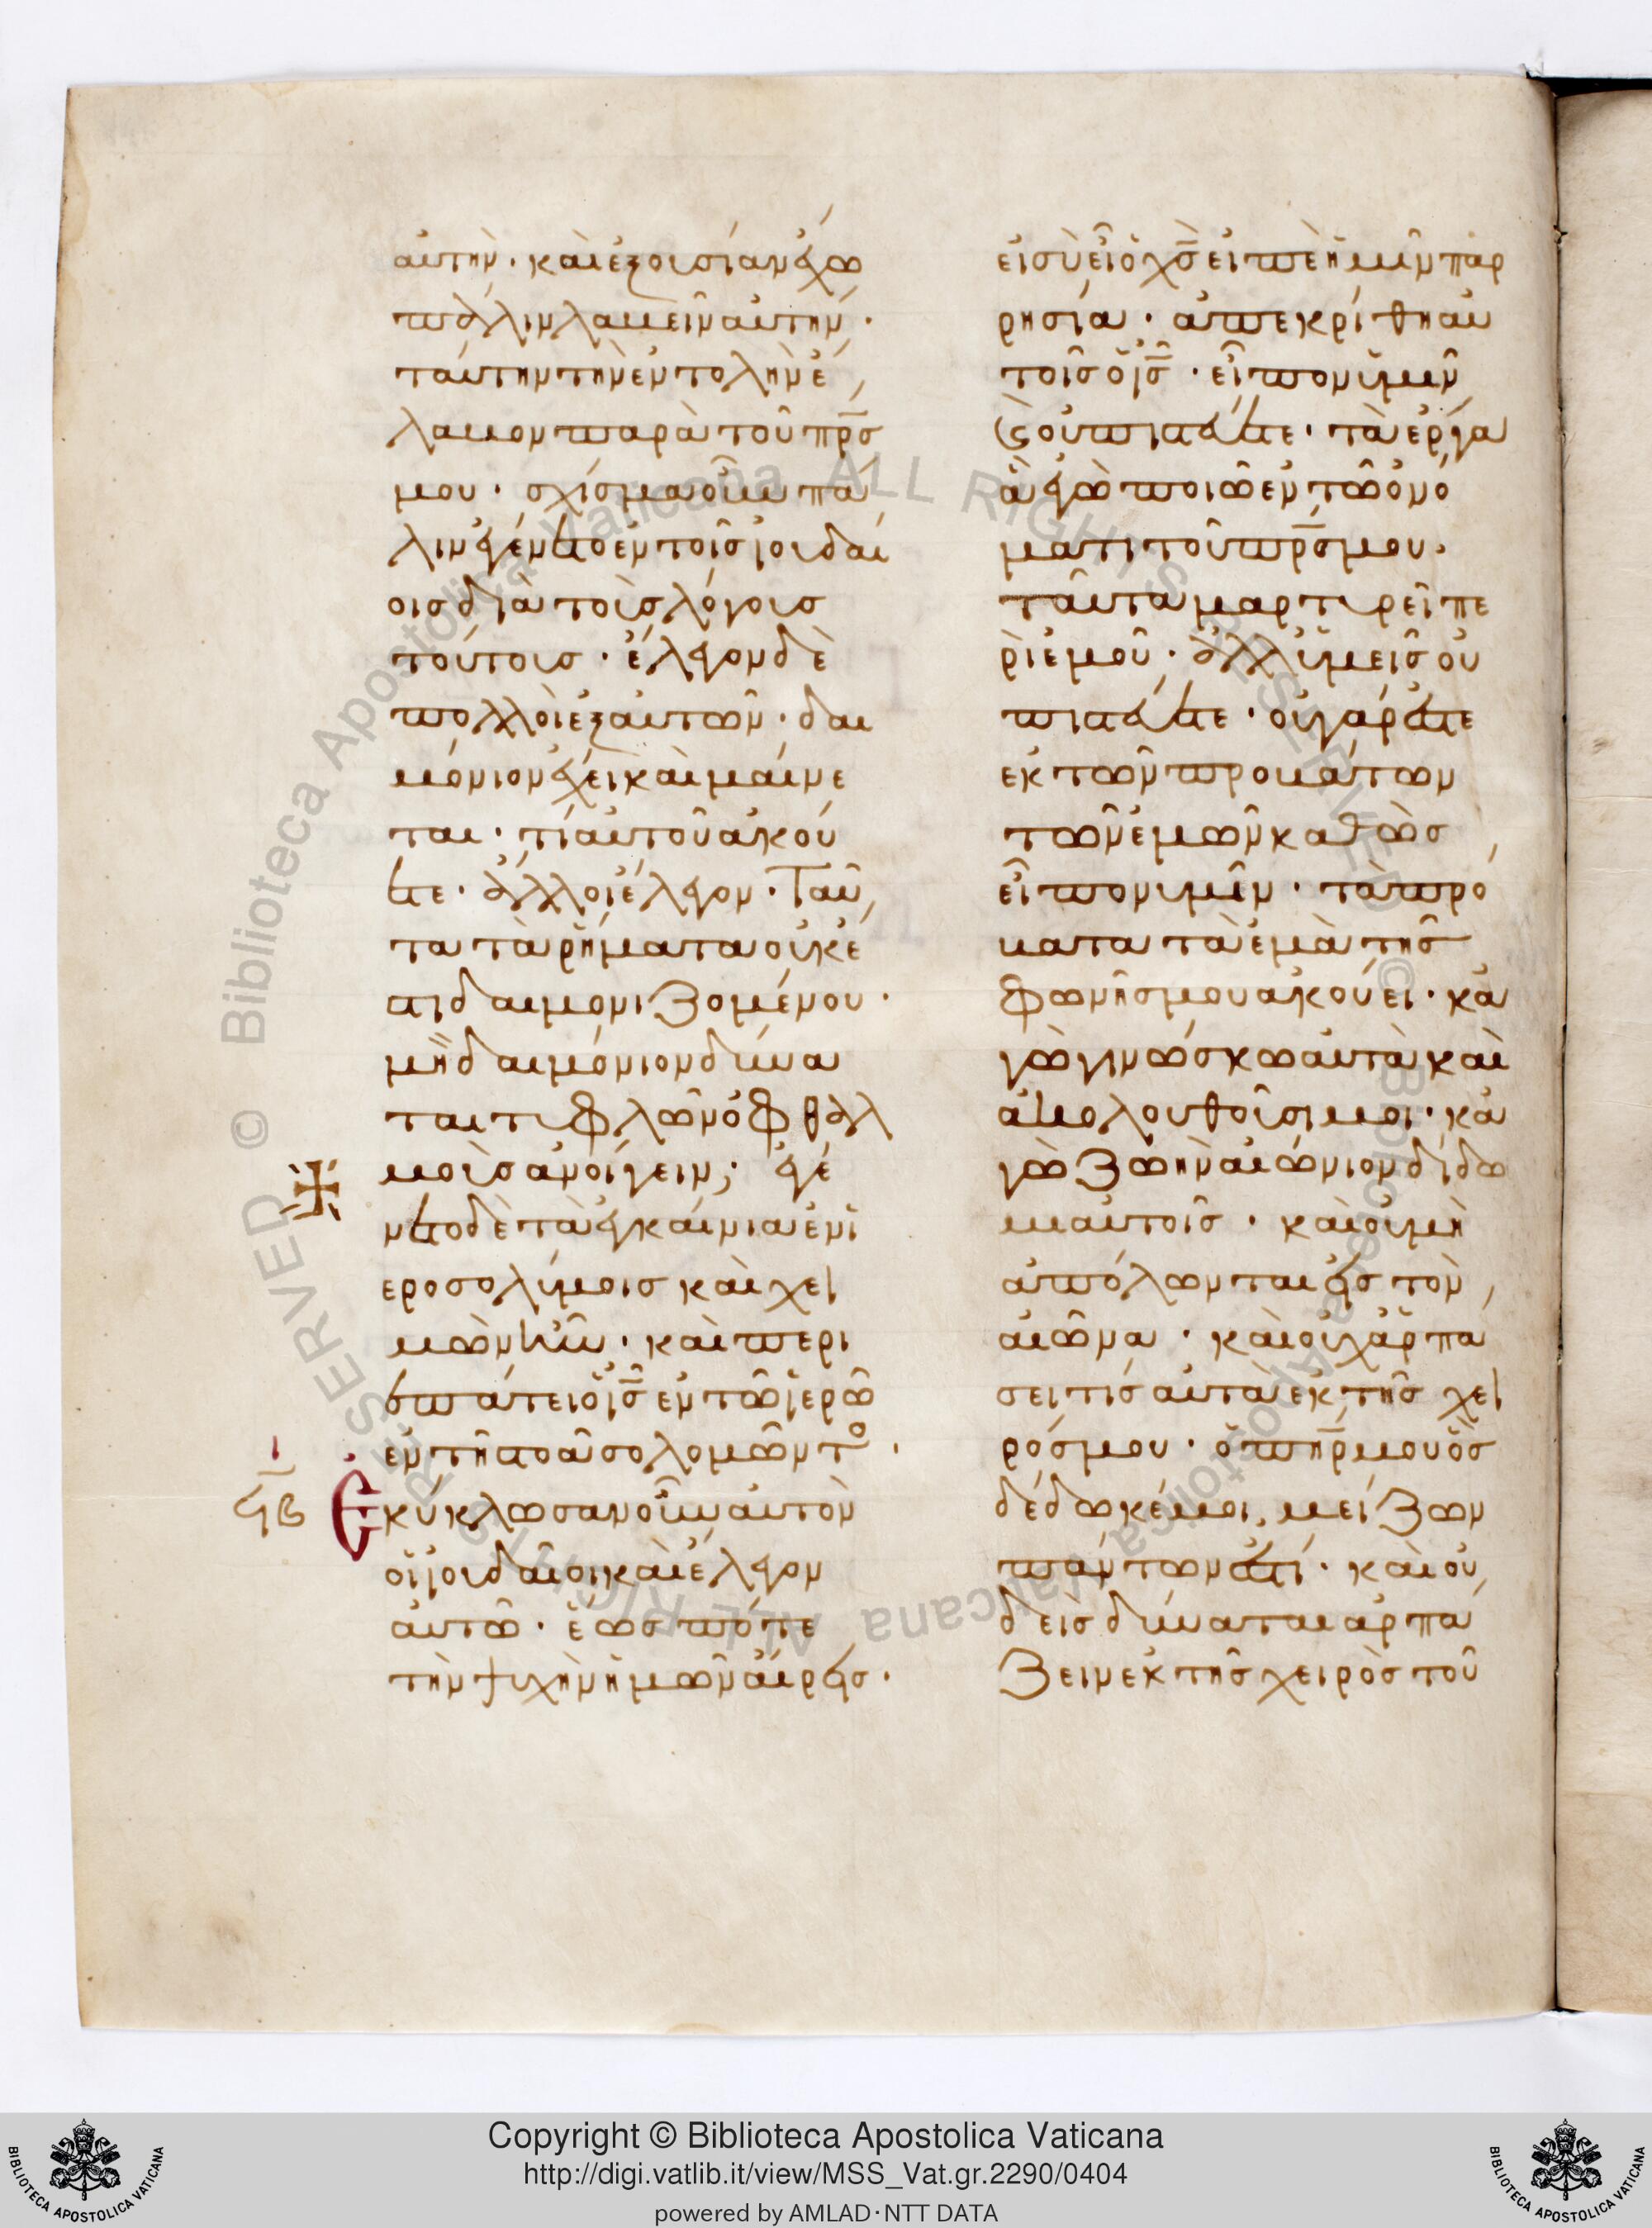 αὐτήν· καὶ ἐξουσίαν ἔχω
πάλιν λαβεῖν αὐτήν·
ταύτην τὴν ἐντολὴν ἔ
λαβον παρὰ τοῦ πρ̅σ
μου· σχίσμα οὖν πά
λιν ἐγένετο ἐν τοῖς ἰουδαί
οις διὰ τοὺς λόγους
τούτους· ἔλεγον δὲ
πολλοὶ ἐξ αὐτῶν· δαι
μόνιον ἔχει καὶ μαίνε
ται· τί αὐτοῦ ἀκού
ετε· ἄλλοι ἔλεγον· Ταῦ
τα τὰ ῥήματα οὐκ ἔ
στι δαιμονιζομένου·
μὴ δαιμόνιον δύνα
ται τυφλῶν ὀφθαλ
μοὺς ἀνοίγειν; ἐγέ
νετο δὲ τὰ ἐγκαίνια ἐν ἱ
εροσολύμοις καὶ χει
μὼν ἦν· καὶ περι
επάτει ὁ ἰ̅ς̅ ἐν τῶ ἱερῶ
ἐν τῆ στοᾶ σολομῶντο·
ϟβ
ι
Ἐκύκλωσαν οὖν αὐτὸν
οἱ ἰουδαῖοι καὶ ἔλεγον
αὐτῶ· ἕως πότε
τὴν ψυχὴν ἡμῶν αἴρεις·
εἰ σὺ εἶ ὁ χ̅ς̅ εἰπὲ ἡμῖν παρ
ρησία· ἀπεκρίθη αὐ
τοῖς ὁ ἰ̅ς̅· εἶπον ὑμῖν
ϗ οὐ πιστεύετε· τὰ ἔργα
ἃ ἐγὼ ποιῶ ἐν τῶ ὀνό
ματι τοῦ πρ̅σ μου·
ταῦτα μαρτυρεῖ πε
ρὶ ἐμοῦ· ἀλλ ὑμεῖς οὐ
πιστεύετε· οὐ γάρ ἐστε
ἐκ τῶν προβάτων
τῶν ἐμῶν καθὼς
εἶπον ὑμῖν· τὰ πρό
βατα τὰ ἐμὰ τῆς
φωνῆς μου ἀκούει· κἀ
γὼ γινώσκω αὐτὰ καὶ
ἀκολουθοῦσι μοι· κἀ
γὼ ζωὴν αἰώνιον δίδω
μι αὐτοῖς· καὶ οὐ μὴ
ἀπόλωνται εἰς τὸν
αἰῶνα· καὶ οὐχ ἁρπά
σει τίς αὐτὰ ἐκ τῆς χει
ρός μου· ὁ πη̅ρ μου ὃς
δέδωκέ μοι, μείζων
πάντων ἐστί· καὶ οὐ
δεὶς δύναται ἁρπά
ζειν ἐκ τῆς χειρὸς τοῦ
Copyright © Biblioteca Apostolica Vaticana
http://digi.vatlib.it/view/MSS_Vat.gr.2290/0404
powered by AMLAD·NTT DATA
BIBLIOTECA APOSTOLICA VATICANA
BIBLIOTECA APOSTOLICA VATICANA
© Biblioteca Apostolica Vaticana ALL RIGHTS RESERVED © Biblioteca Apostolica Vaticana ALL RIGHTS RESERVED